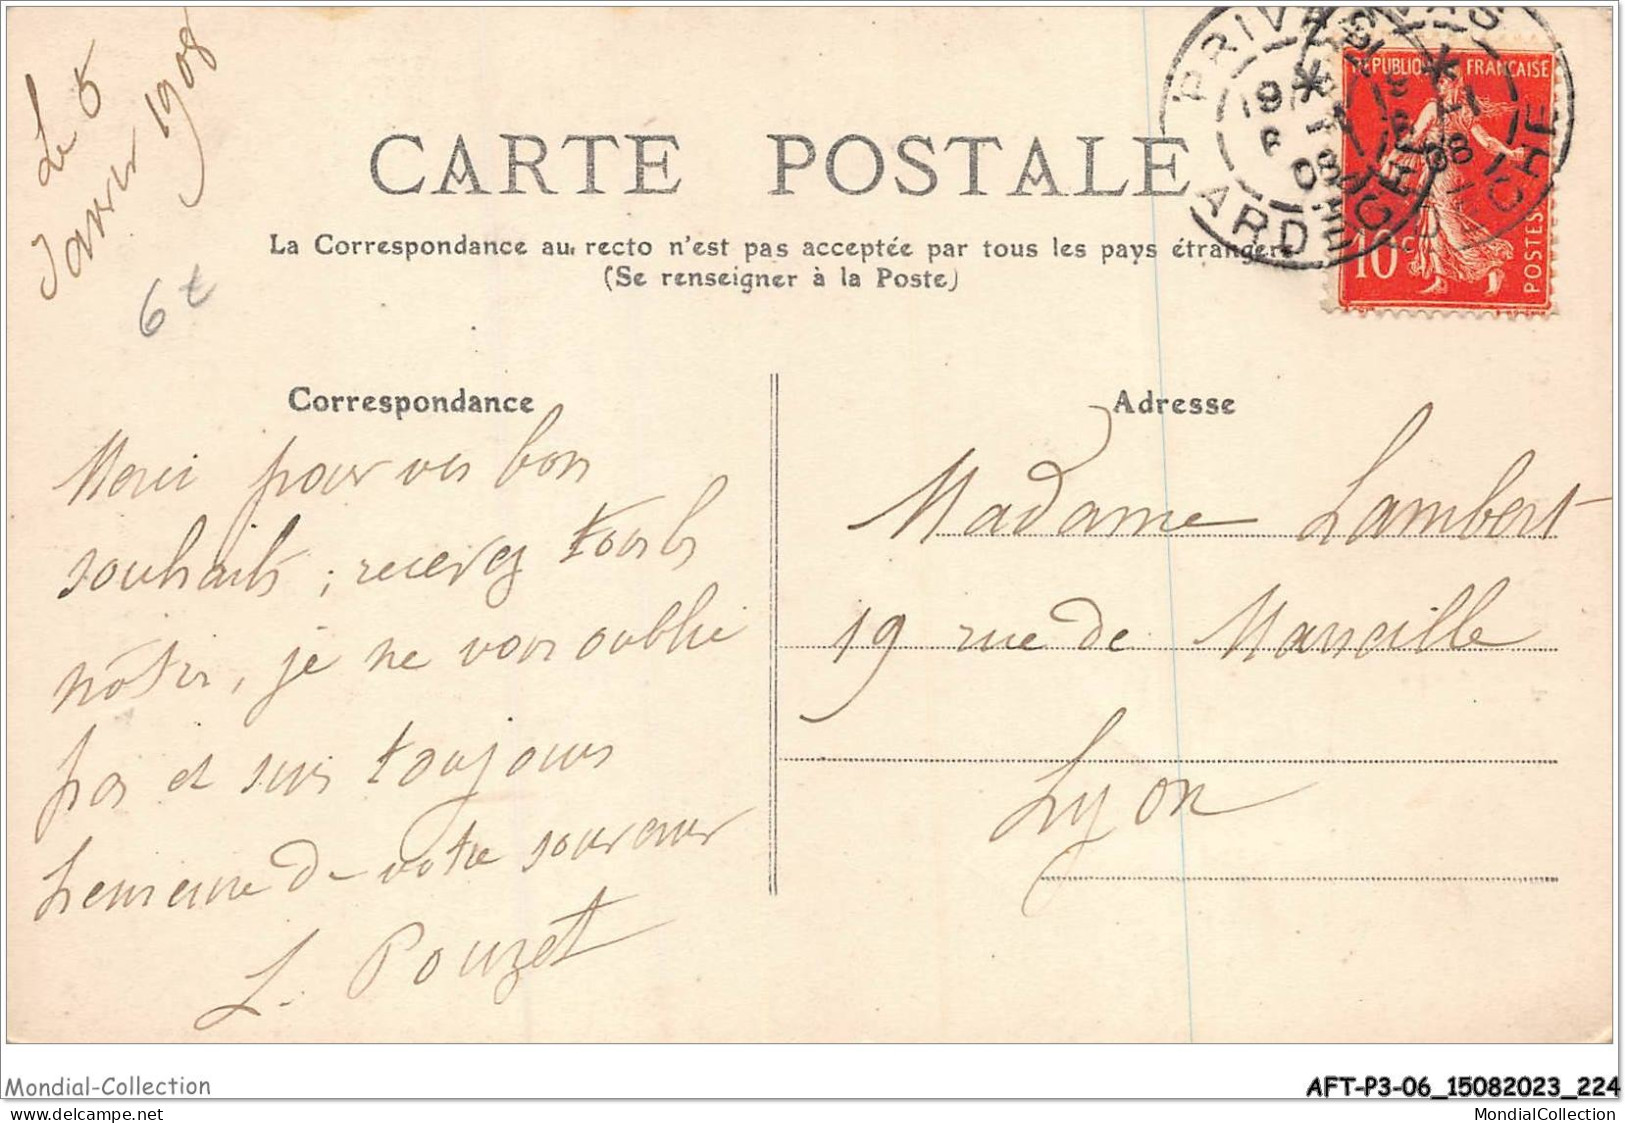 Le 5
Janvier 1908
6 t
CARTE POSTALE
La Correspondance au recto n'est pas acceptée par tous les pays étrangers
(Se renseigner à la Poste)
PRIVAS
ARDECHE
19
6
08
PRIVAS
ARDECHE
19
08
REPUBLIQUE FRANCAISE
10c
POSTES
Correspondance
Merci pour vos bons
souhaits ; recevez tous les
nôtres, je ne vous oublie
pas et suis toujours
heureuse de votre souvenir
L. Pouzet
Adresse
Madame Lambert
19 rue de Marseille
Lyon
Mondial-Collection
AFT-P3-06_15082023_224
www.delcampe.net
MondialCollection